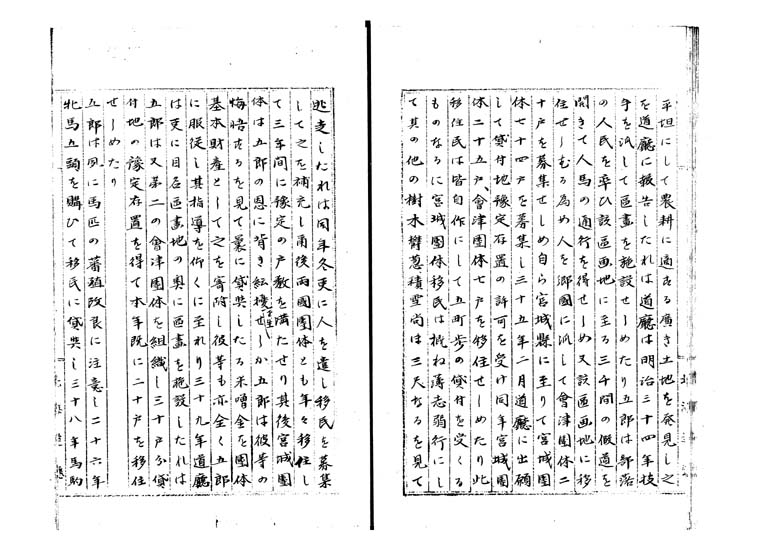 平坦にして農耕に適する廣き土地を発見し之
を道廳に報告したれは道廳は明治三十四年技
手を派して區畫を施設せしめたり五郎は部落
の人民を率ひ該區画地に至る三千間の假道を
開きて人馬の通行を得せしめ又該區画地に移
住せしむる為め人を郷國に派して會津團体二
十戸を募集せしめ自ら宮城縣に至りて宮城團
体七十四戸を募集し三十五年二月道廳に出願
して貸付地豫定存置の許可を受け同年宮城團
体二十五戸、會津團体七戸を移住せしめたり此
移住民は皆自作にして五町歩の貸付を受くる
ものなるに宮城團体移民は概ね薄志弱行にし
て其の他の樹木欝蒼積雪尚ほ三尺なるを見て
逃走したれは同年冬更に人を遣し移民を募集
して之を補充し爾後両國團体とも年々移住し
て三年間に豫定の戸数を満たせり其後宮城團
体は五郎の恩に背き紛擾を生せしか五郎は彼等の
悔悟するを見て曩に貸與したる米噌金を團体
基本財産として之を寄附し彼等も亦全く五郎
に服従し其指導を仰くに至れり三十九年道廳
は更に目名區畫地の奥に區畫を施設したれは
五郎は又第二の會津團体を組織し三十戸分貸
付地の豫定存置を得て本年既に二十戸を移住
せしめたり
五郎は夙に馬匹の蕃殖改良に注意し二十六年
牝馬五頭を購ひて移民に貸與し三十八年馬匹